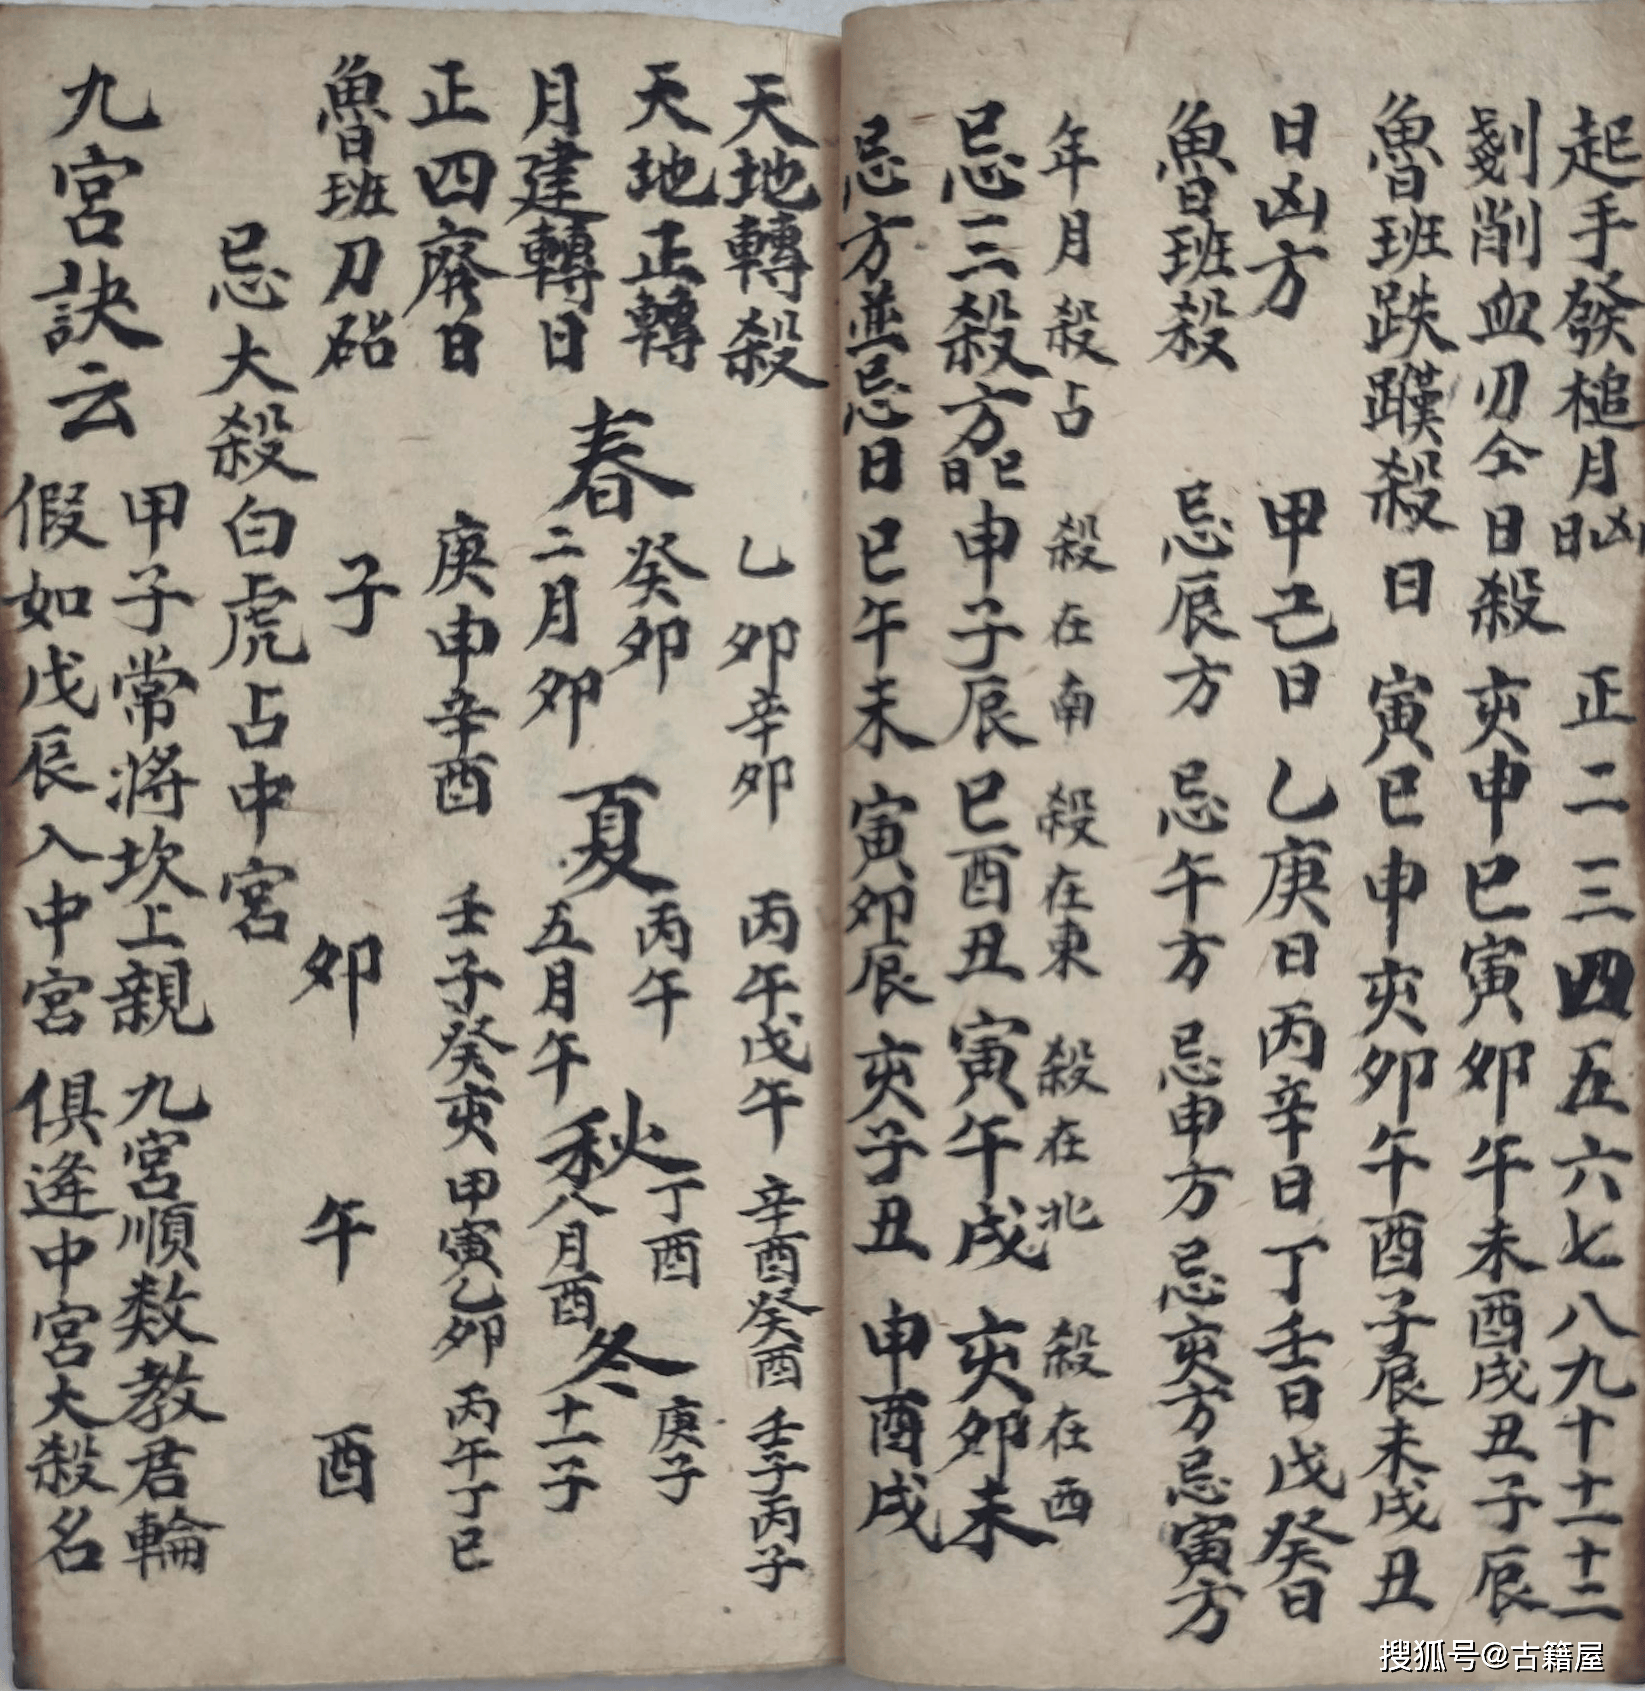 起手發槌月凶日 正二三四五六七八九十十一十二
剗削血刃仝日殺 亥申巳寅卯午未酉戌丑子辰
魯班跌蹼殺日 寅巳申亥卯午酉子辰未戌丑
日凶方 甲己日 乙庚日 丙辛日 丁壬日 戊癸日
魯班殺 忌辰方 忌午方 忌申方 忌亥方 忌寅方
年月殺占 殺在南 殺在東 殺在北 殺在西
忌三殺方日巳 申子辰 巳酉丑 寅午戌 亥卯未
忌方並忌日 巳午未 寅卯辰 亥子丑 申酉戌
天地轉殺 乙卯辛卯 丙午戊午 辛酉癸酉 壬子丙子
天地正轉 癸卯 丙午 丁酉 庚子
春 夏 秋 冬
月建轉日 二月卯 五月午 八月酉 十一子
正四廢日 庚申辛酉 壬子癸亥 甲寅乙卯 丙午丁巳
魯班刀砧 子 卯 午 酉
忌大殺白虎占中宮
九宮訣云
甲子常將坎上親 九宮順数教君輪
假如戊辰入中宮 俱逄中宮大殺名
搜狐号@古籍屋